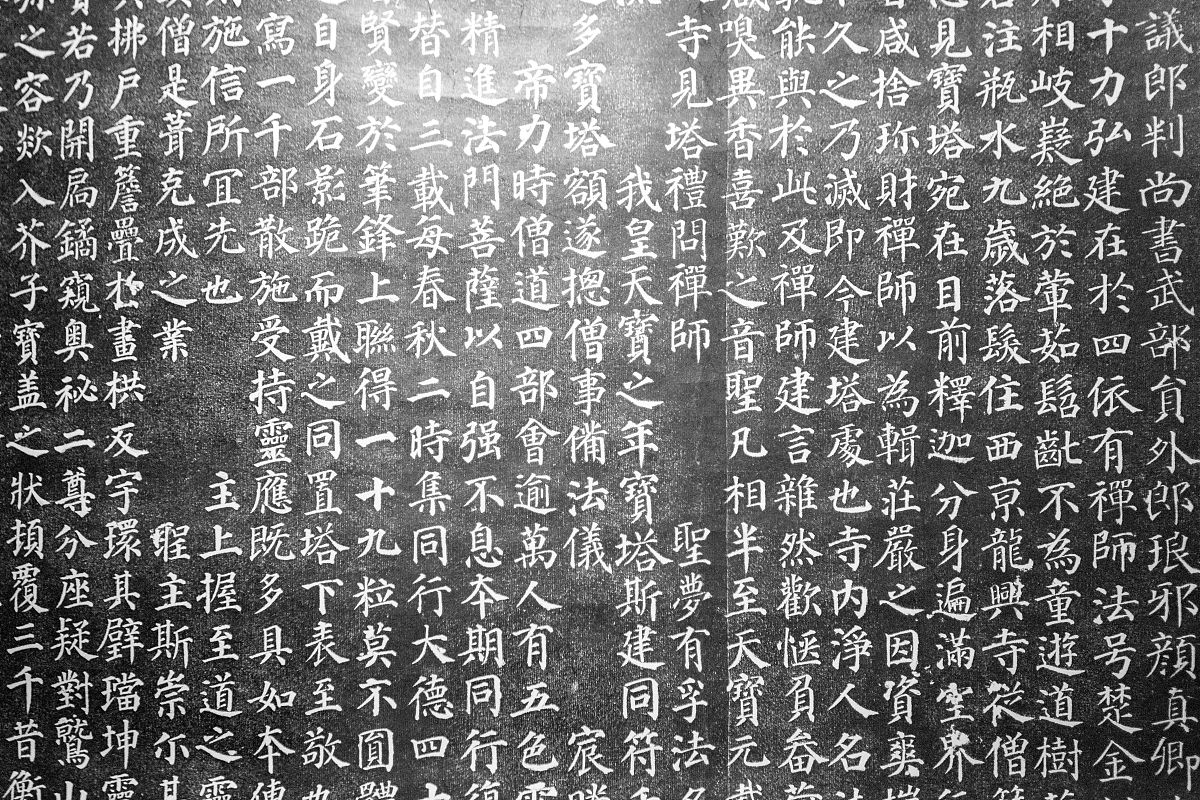 議郎判尚書武部員外郎琅邪顏真卿
十力弘建在於四依有禪師法号楚金
相岐嶷絕於葷茹髫齔不為童遊道樹
注瓶水九歲落髮住西京龍興寺從僧
見寶塔宛在目前釋迦分身遍滿空界
咸捨珎財禪師以為輯莊嚴之因資爽
久之乃滅即今建塔處也寺內淨人名
能與於此及禪師建言雜然歡愜負畚
嗅異香喜歎之音聖凡相半至天寶元
寺見塔禮問禪師 聖夢有孚法
我皇天寶之年寶塔斯建同符
多寶塔額遂摠僧事備法儀 宸
帝力時僧道四部會逾萬人有五色
精進法門菩薩以自强不息夲期同行
替自三載每春秋二時集同行大德四
賢變於筆鋒上聯得一十九粒莫不圓
自身石影跪而戴之同置塔下表至敬
寫一千部散施受持靈應既多具如夲傳
施信所冝先也 主上握至道之靈
僧是葺克成之業 聖主斯崇尒其
拂戶重簷疊於畫栱反宇環其璧璫坤靈
若乃開扃鐍窺奧秘二尊分座疑對鷲山
之容欻入芥子寶盖之狀頓覆三千昔衡